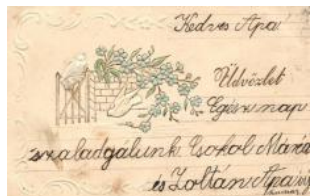 Kedves Apa
Üdvözlet
Egész nap
szaladgálunk. Csókol Mára
és Zoltán Apa